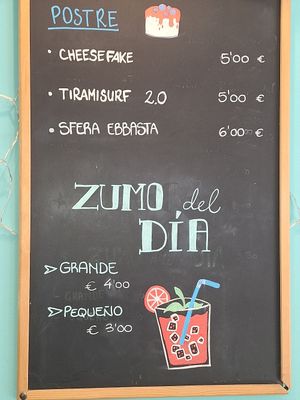 POSTRE
• CHEESEFAKE 5'00 €
• TIRAMISURF 2.0 5'00 €
• SFERA EBBASTA 6'00 €
ZUMO del
DÍA
➢ GRANDE
€ 4'00
➢ PEQUEÑO
€ 3'00